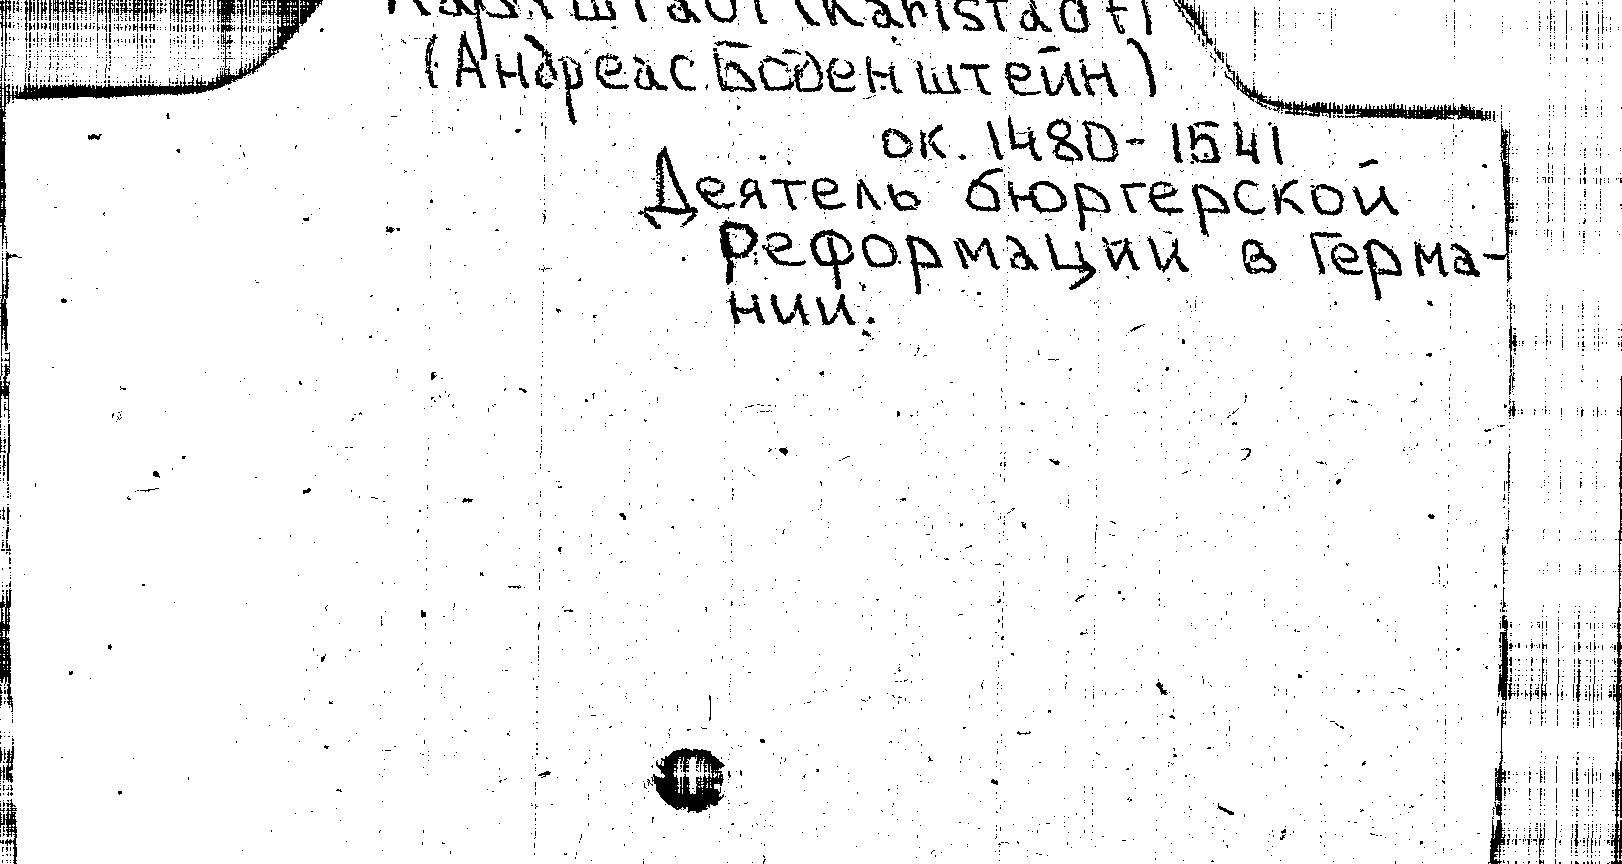 Карлштадт (Karlstadt)
(Андреас Боденштейн)
ок. 1480-1541
Деятель бюргерской
Реформации в Герма-
нии.